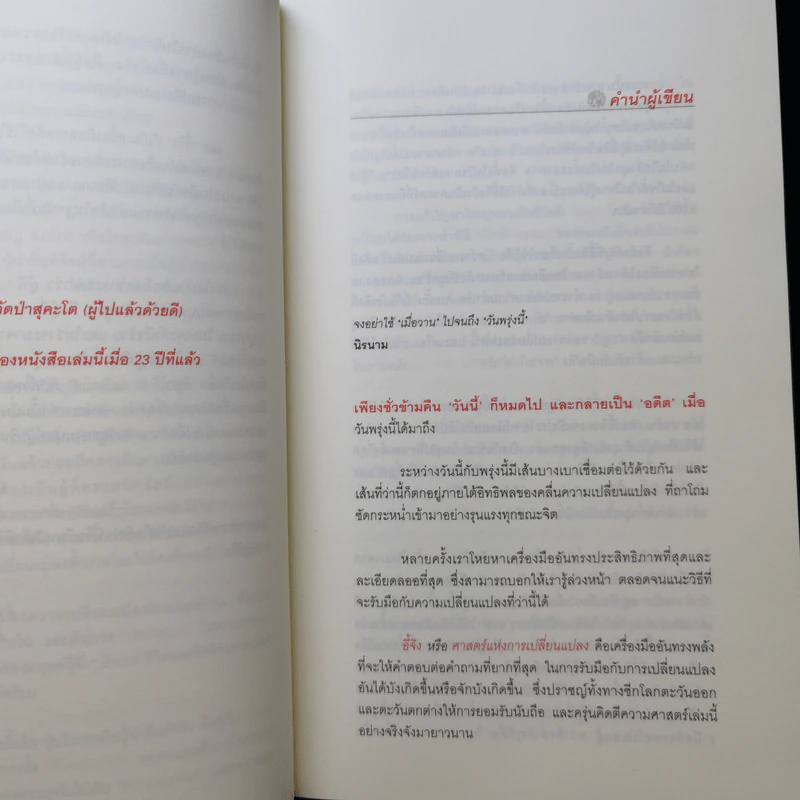 วัดป่าสุคะโต (ผู้ไปแล้วด้วยดี)
องหนังสือเล่มนี้เมื่อ 23 ปีที่แล้ว
คำนำผู้เขียน
จงอย่าใช้ 'เมื่อวาน' ไปจนถึง 'วันพรุ่งนี้'
นิรนาม
เพียงชั่วข้ามคืน 'วันนี้' ก็หมดไป และกลายเป็น 'อดีต' เมื่อ
วันพรุ่งนี้ได้มาถึง
ระหว่างวันนี้กับพรุ่งนี้มีเส้นบางเบาเชื่อมต่อไว้ด้วยกัน และ
เส้นที่ว่านี้ก็ตกอยู่ภายใต้อิทธิพลของคลื่นความเปลี่ยนแปลง ที่ถาโถม
ซัดกระหน่ำเข้ามาอย่างรุนแรงทุกขณะจิต
หลายครั้งเราโหยหาเครื่องมืออันทรงประสิทธิภาพที่สุดและ
ละเอียดลออที่สุด ซึ่งสามารถบอกให้เรารู้ล่วงหน้า ตลอดจนแนะวิธีที่
จะรับมือกับความเปลี่ยนแปลงที่ว่านี้ได้
อี้จิง หรือ ศาสตร์แห่งการเปลี่ยนแปลง คือเครื่องมืออันทรงพลัง
ที่จะให้คำตอบต่อคำถามที่ยากที่สุด ในการรับมือกับการเปลี่ยนแปลง
อันได้บังเกิดขึ้นหรือจักบังเกิดขึ้น ซึ่งปราชญ์ทั้งทางซีกโลกตะวันออก
และตะวันตกต่างให้การยอมรับนับถือ และครุ่นคิดตีความศาสตร์เล่มนี้
อย่างจริงจังมายาวนาน